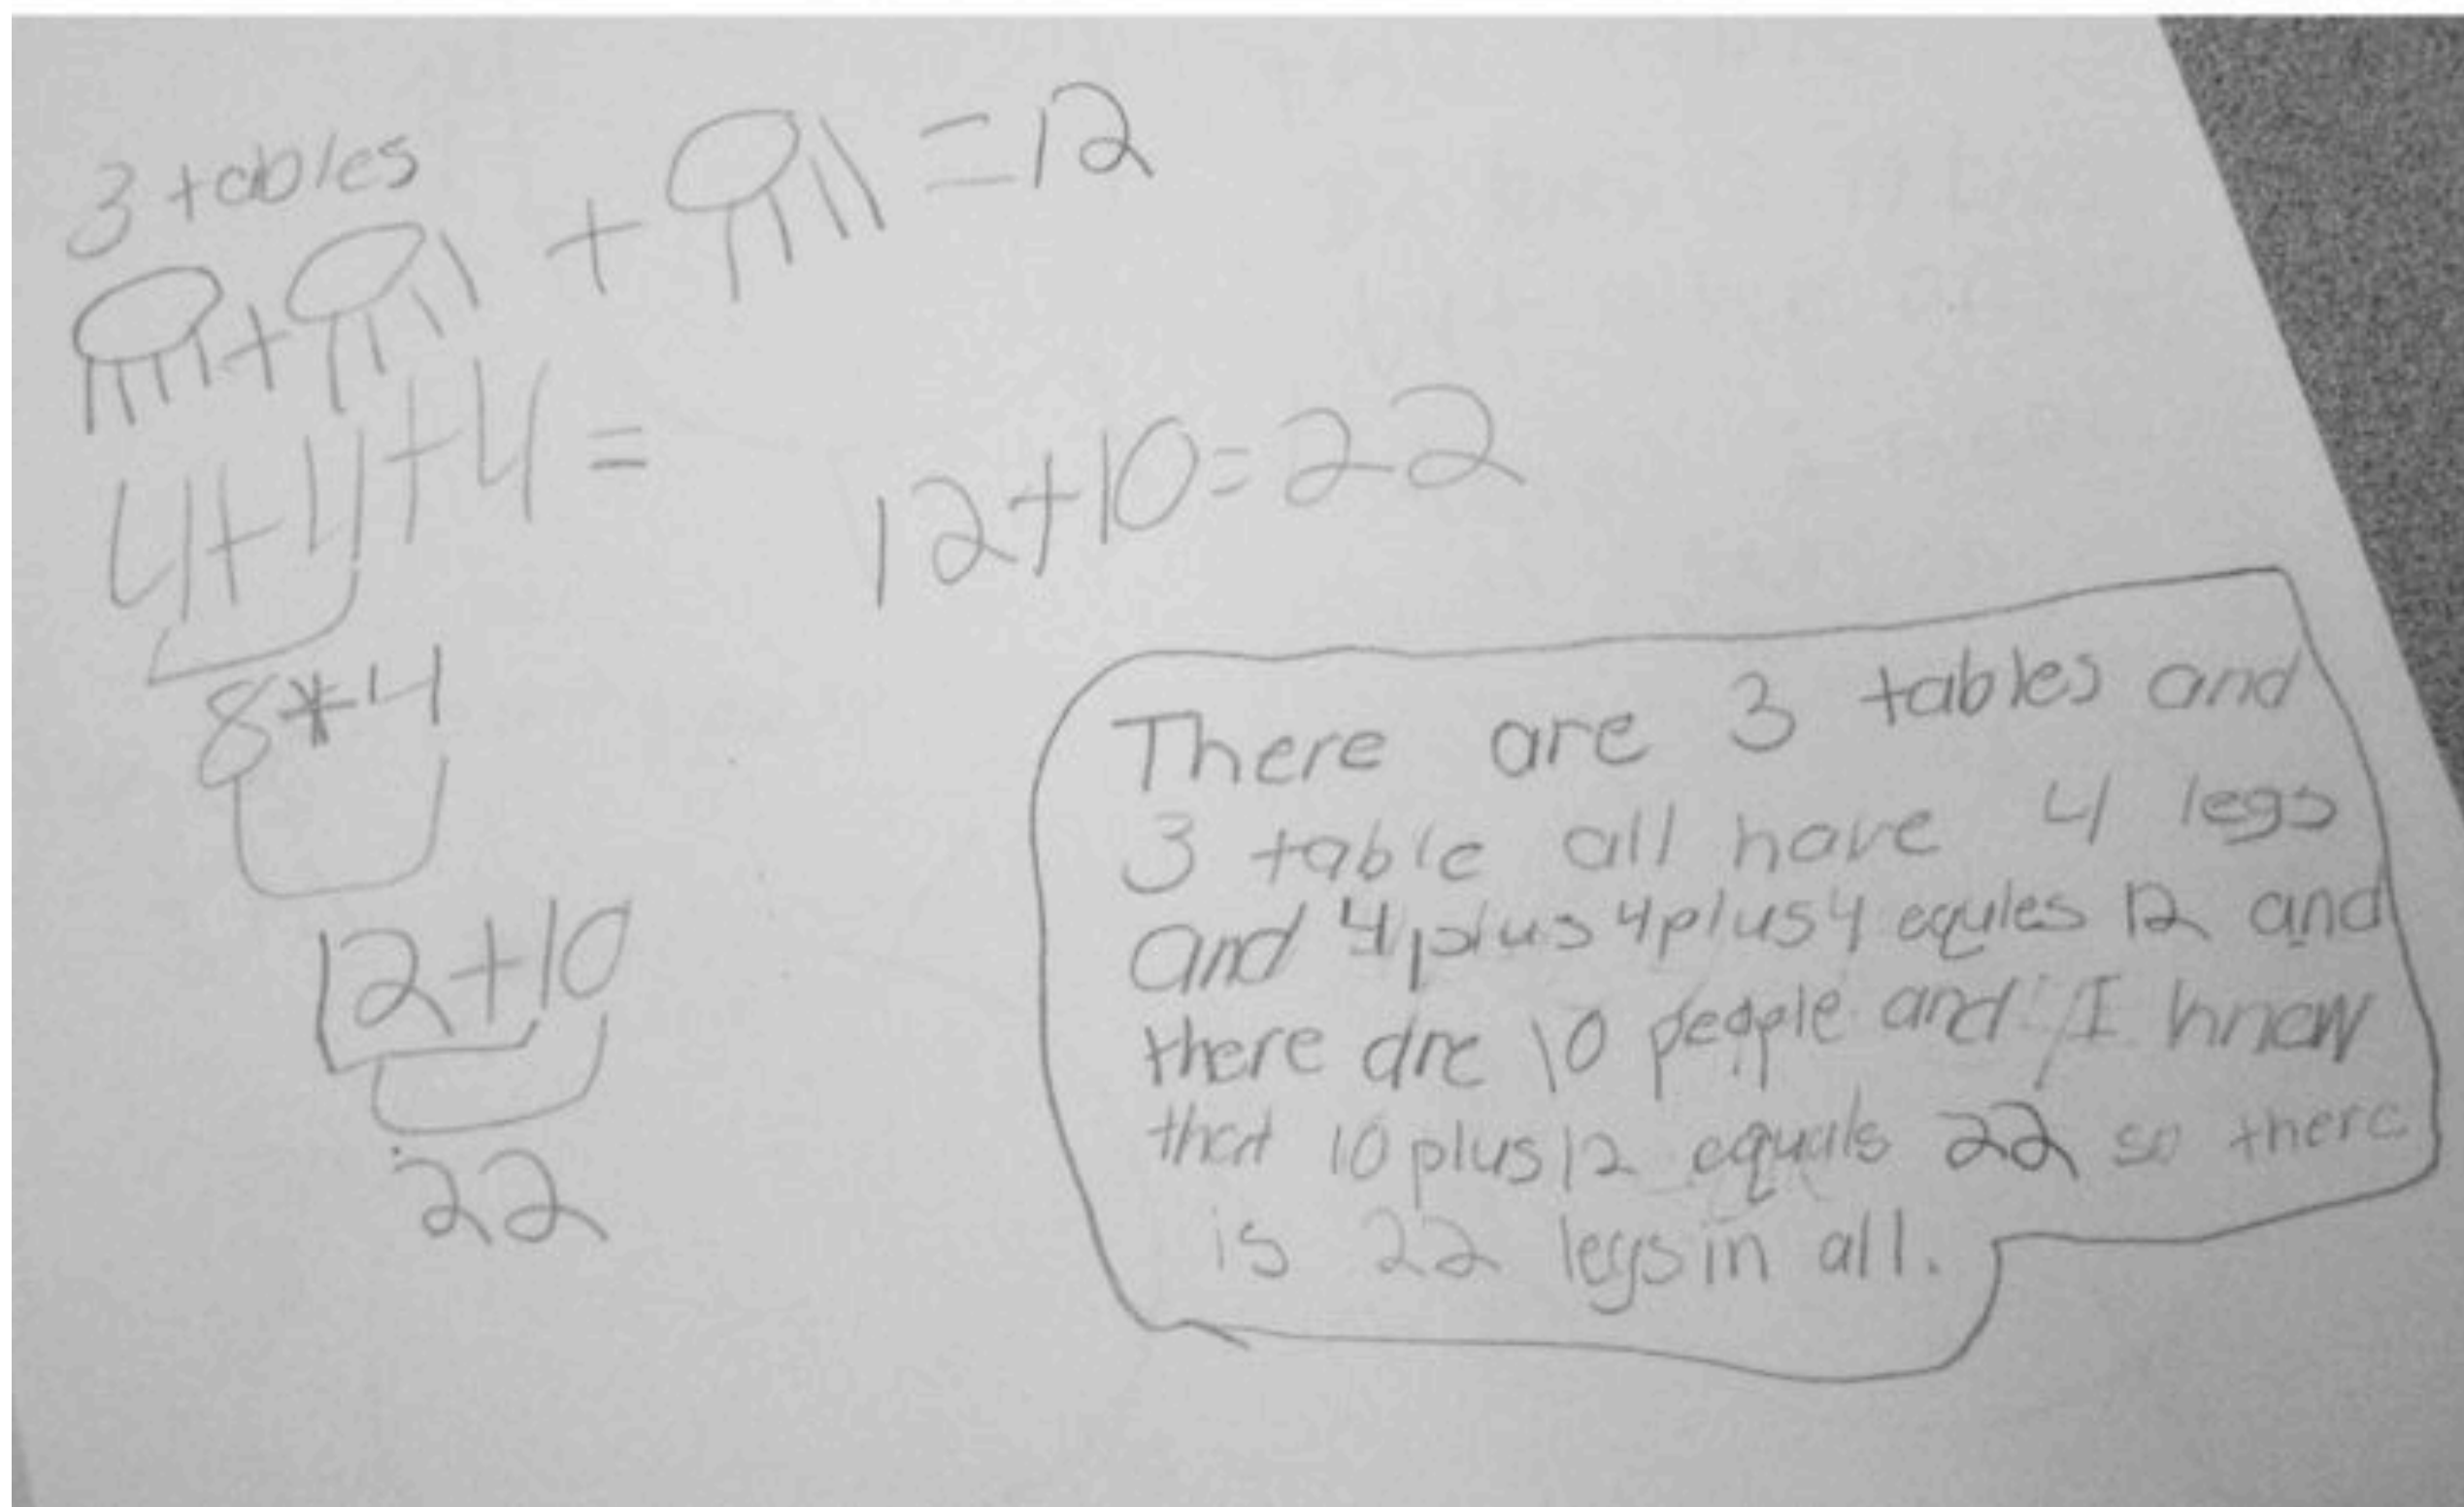 3 tables
+ + = 12
4+4+4=
12+10=22
8+4
12+10
22
There are 3 tables and
3 table all have 4 legs
and 4 plus 4 plus 4 equles 12 and
there are 10 people and I know
that 10 plus 12 equals 22 so there
is 22 legs in all.